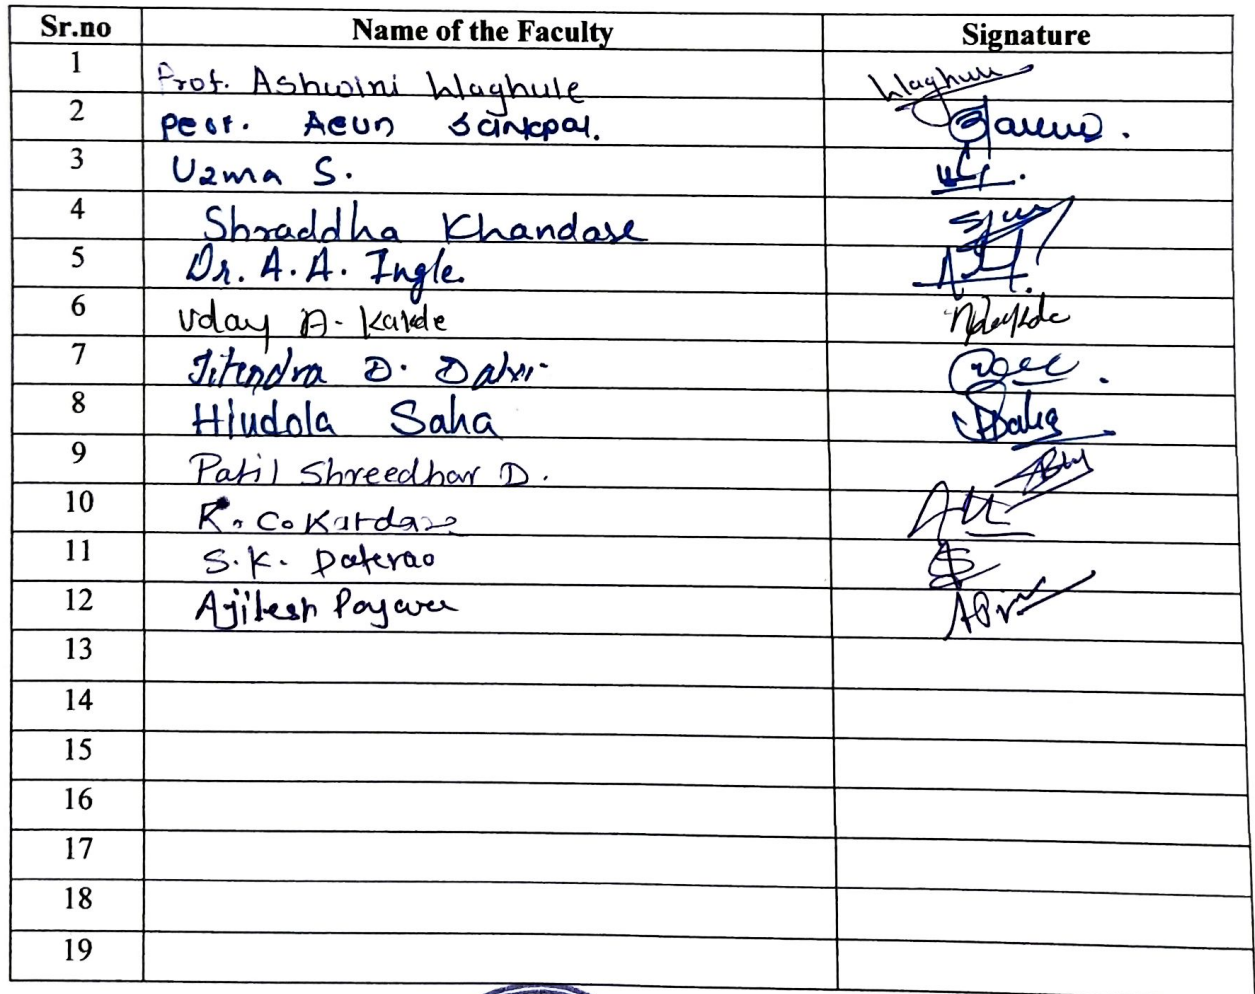 Sr.no Name of the Faculty Signature
1 Prof. Ashwini Waghule Waghule
2 Prof. Arun Sankpal.
3 Uzma S.
4 Shraddha Khandare
5 Dr. A. A. Ingle.
6 Uday A. Kakde
7 Jitendra D. Dalvi
8 Hindola Saha
9 Patil Shreedhar D.
10 R. C. Kardare
11 S.K. Paterao
12
13
14
15
16
17
18
19